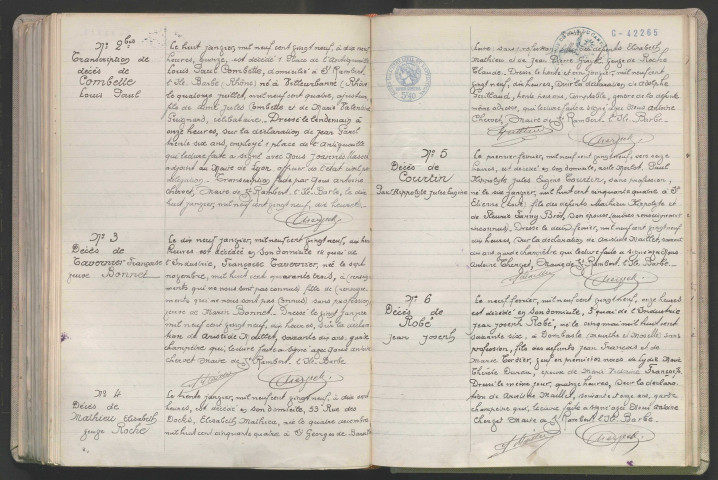 Nº 2 bis
Transcription de
décès de
Combette
Louis Paul
Le huit janvier, mil neuf cent vingt neuf, à dix sept
heures, quinze, est décédé 1 Place de l'Antiquaille
Louis Paul Combette, domicilié à St Rambert
l'Ile Barbe (Rhône) né à Villeurbanne (Rhône)
le quatorze juillet, mil neuf cent quatre,
fils de Jules Combette et de Marie Valentine
célibataire. Dressé le lendemain à
onze heures, sur la déclaration de Jean
trente six ans, employé 1 place de l'Antiquaille
qui lecture faite a signé avec Nous
adjoint au Maire de Lyon, officier de l'état civil par
délégation. Transcription faite par Nous Antoine
Chervet, Maire de St Rambert l'Ile Barbe, le dix
huit janvier, mil neuf cent vingt neuf, dix heures.
Chervet
Nº 3
Décès de
Tavernier Françoise
veuve Bonnet
Le dix neuf janvier, mil neuf cent vingt neuf,
heures est décédée en son domicile 18 quai de
l'Industrie, Françoise Tavernier, née le sept
novembre, mil huit cent quarante trois, à (renseigne
ments qui ne nous sont pas connus) fille de (renseigne
ments qui ne nous sont pas connus) sans profession,
veuve de Marin Bonnet. Dressé le vingt janvier
mil neuf cent vingt neuf, dix heures, sur la déclara
tion de Aristide Maillet, soixante dix ans, garde
champêtre qui, lecture faite a signé avec Nous Antoine
Chervet Maire de St Rambert l'Ile Barbe
Chervet
Nº 4
Décès de
Mathieu Elisabeth
veuve Roche
Le trente janvier, mil neuf cent vingt neuf, à dix sept
heures, est décédée en son domicile, 53 Rue des
Docks, Elisabeth Mathieu, née le quatre décembre,
mil huit cent cinquante quatre à St Georges de
C-42265
(Loire) sans profession, fille des défunts Elisabeth
Mathieu et de Jean Pierre veuve de Roche
Claude. Dressé le trente et un janvier, mil neuf cent
vingt neuf, dix heures, sur la déclaration de Adolphe
trente ans, comptable, gendre de la défunte
même adresse, qui lecture faite a signé avec Nous Antoine
Chervet, Maire de St Rambert l'Ile Barbe.
Chervet
Nº 5
Décès de
Courtin
Paul Hippolyte Jules Eugène
Le premier février, mil neuf cent vingt neuf, vers onze
heures, est décédé en son domicile, Paul
Hippolyte Jules Eugène Courtin, sans profession,
né le dix janvier, mil huit cent cinquante quatre à St
Etienne (Loire) fils des défunts Mathieu Hippolyte et
de Fanny Bros, son épouse, (autres renseignements
inconnus). Dressé le deux février, mil neuf cent vingt neuf
dix heures, sur la déclaration de Aristide Maillet, soixante
dix ans garde champêtre qui lecture faite a signé avec Nous
Antoine Chervet, Maire de St Rambert l'Ile Barbe.
Chervet
Nº 6
Décès de
Robé
Jean Joseph
Le neuf février, mil neuf cent vingt neuf, onze heures
est décédé en son domicile, 3 quai de l'Industrie
Jean Joseph Robé, né le cinq mai mil huit cent
soixante six, à Dombasle (Meurthe et Moselle) sans
profession, fils des défunts Jean François et de
Marie veuf en premières noces de Lydie Marie
Thérèse époux de Marie Françoise
Dressé le même jour, quinze heures, sur la déclara
tion de Aristide Maillet, soixante dix ans, garde
champêtre qui, lecture faite a signé avec Nous Antoine
Chervet Maire de St Rambert l'Ile Barbe.
Chervet